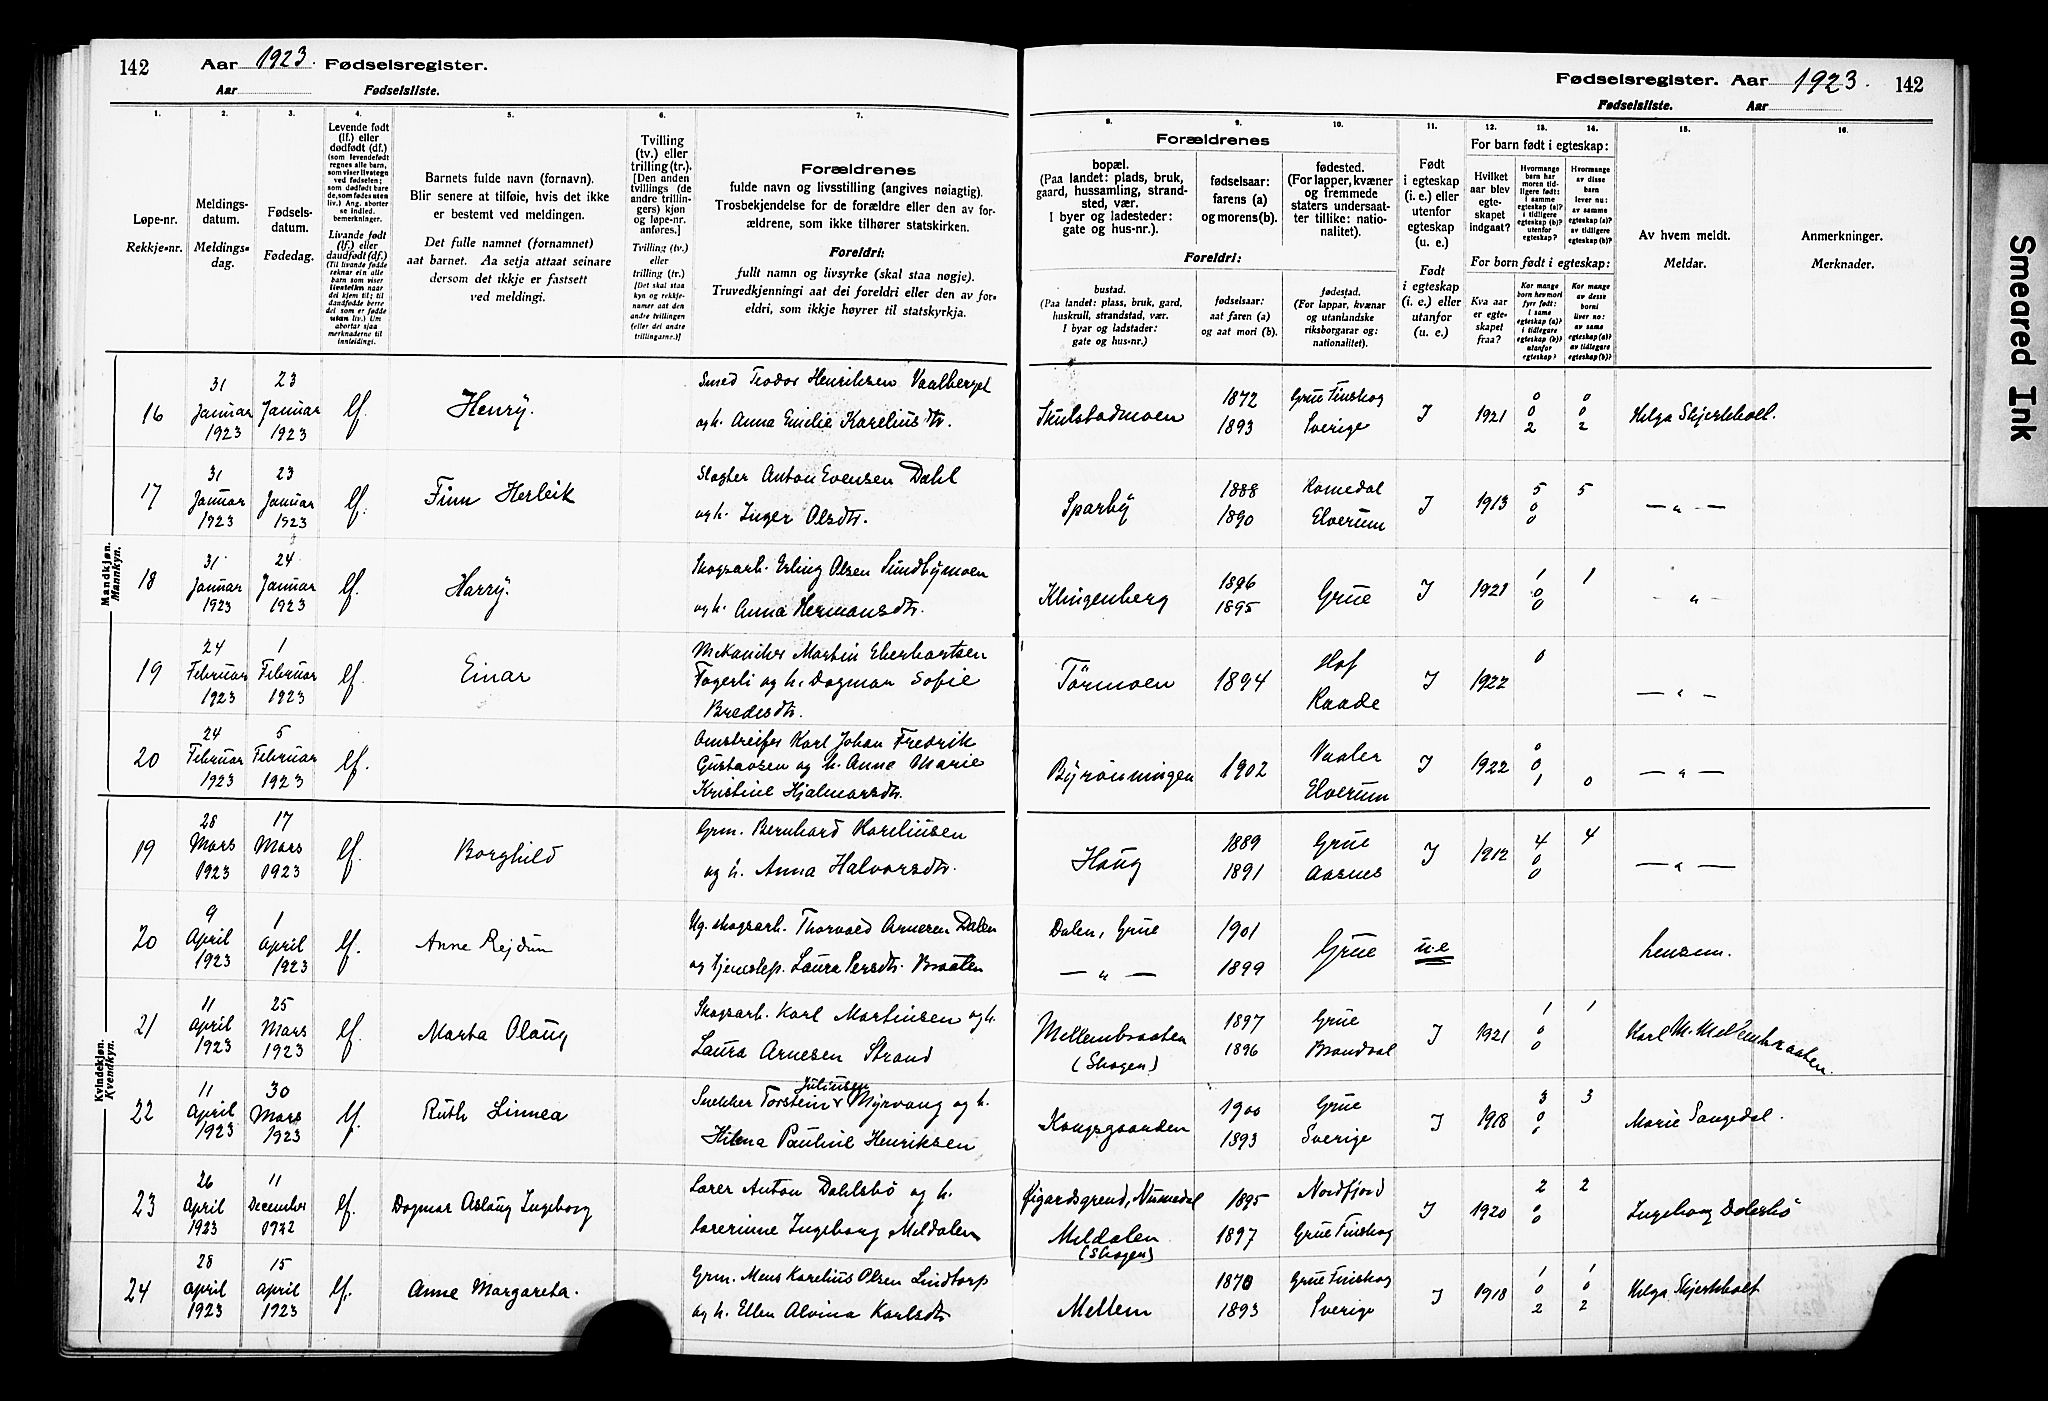 142 Aar 1923. Fødselsregister.
Aar Fødselsliste.
Fødselsregister. Aar 1923. 142
Fødselsliste. Aar
1. 2. 3. 4. 5. 6. 7. 8. 9. 10. 11. 12. 13. 14. 15. 16.
Løpe-nr.
Rekkje-nr.
Meldings-
datum.
Meldings-
dag.
Fødsels-
datum.
Fødedag.
Levende født
(lf.) eller
dødfødt (df.)
(som levendefødt
regnes alle barn,
som viser livstegn
ved fødselen;
som dødfødt bare
de, som fødes uten
liv.) Ang. aborter
se indled.
bemerkninger.
Livande født
(lf.) eller
daudfødt (df.)
(Til livande fødde
reknar ein alle
barn som viser
livsteikn naar
dei kjem til; til
daudfødde berre
dei som er fødde
utan liv.) Um
abortar sjaa
merknaderne til
innleidingi.
Barnets fulde navn (fornavn).
Blir senere at tilføie, hvis det ikke
er bestemt ved meldingen.
Det fulle namnet (fornamnet)
aat barnet. Aa setja attaat seinare
dersom det ikkje er fastsett
ved meldingi.
Tvilling
(tv.) eller
trilling (tr.).
[Den anden
tvillings (de
andre trillin-
gers) kjøn
og løpe-nr.
anføres.]
Tvilling (tv.)
eller
trilling (tr.)
[Det skal staa
kyn og rekkje-
numer aat den
andre tvillingen
(eller dei andre
trillingarne.)]
Forældrenes
fulde navn og livsstilling (angives nøiagtig).
Trosbekjendelse for de forældre eller den av for-
ældrene, som ikke tilhører statskirken.
Foreldri:
fullt namn og livsyrke (skal staa nøgje).
Truvedkjenningi aat dei foreldri eller den av for-
eldri, som ikkje høyrer til statskyrkja.
Forældrenes
bopæl.
(Paa landet: plads, bruk,
gaard, hussamling, strand-
sted, vær.
I byer og ladesteder:
gate og hus-nr.).
fødselsaar:
farens (a)
og morens (b).
fødested.
(For lapper, kvæner
og fremmede
staters undersaat-
ter tillike: natio-
nalitet).
Foreldri:
bustad.
(Paa landet: plass, bruk, gard,
huskrull, strandstad, vær.
I byar og ladstader:
gate og hus-nr.)
fødselsaar:
aat faren (a)
og aat mori (b).
fødestad.
(For lappar, kvænar
og utanlandske
riksborgarar og:
nationalitet).
Født
i egteskap
(i. e.) eller
utenfor
egteskap
(u. e.)
Født
i egteskap
(i. e.) eller
utanfor
(u. e.)
For barn født i egteskap:
Hvilket
aar blev
egte-
skapet
indgaat?
Hvormange
barn har
moren tid-
ligere født:
i samme
egteskap (a)?
i tidligere
egteskap (b)?
utenfor
egteskap?
Hvormange
av disse
barn
lever nu:
av samme
egteskap (a)?
av tidligere
egteskap (b)?
For born født i egteskap:
Kva aar
er egte-
skapet
fraa?
Kor mange
born hev mori
fyrr født:
I same
egteskap (a)?
i tidlegare
egteskap (b)?
utanum
egteskap?
Kor mange
av desse
borni
liver no:
av same
egteskap (a)?
av tidlegare
egteskap (b)?
Av hvem meldt.
Meldar.
Anmerkninger.
Merknader.
Mandkjøn.
Mannkyn.
16 31 Januar 1923 23 Januar 1923 lf. Henry. Smed Teodor Henriksen Vaalberget
og h. Anna Emilie Kareliusdtr. Skulstadmoen 1872 1893 Grue Finskog Sverige I 1921 0 0 2 0 0 2 Helga Skjerkholt.
17 31 Januar 1923 23 Januar 1923 lf. Finn Herleik Slagter Anton Evensen Dahl
og h. Inger Olsdtr. Sparby 1888 1890 Romedal Elverum I 1913 5 0 0 5 — " —
18 31 Januar 1923 24 Januar 1923 lf. Harry. Skogsarb. Erling Olsen Sundbymoen
og h. Anna Hermansdtr. Klingenberg 1896 1895 Grue I 1921 1 0 0 1 - " -
19 24 Februar 1923 1 Februar 1923 lf. Einar Mekaniker Martin Eberhartsen
Fagerli og h. Dagmar Sofie
Bredesdtr. Tørmoen 1894 Hof Raade I 1922 0 — " —
20 24 Februar 1923 5 Februar 1923 lf. Omstreifer Karl Johan Fredrik
Gustavsen og h. Anna Marie
Kristine Hjalmarsdtr. Byrønningen 1902 Vaaler Elverum I 1922 0 0 1 0 — " —
Kvindekjøn.
Kvendkyn.
19 28 Mars 1923 17 Mars 1923 lf. Borghild Grm. Bernhard Kareliusen
og h. Anna Halvorsdtr. Haug 1889 1891 Grue Aasnes I 1912 4 0 0 4 — " —
20 9 April 1923 1 April 1923 lf. Anne Rejdun Ug. skogsarb. Thorvald Arnesen Dalen
og tjenestep. Laura Persdtr. Braaten Dalen, Grue — " — 1901 1899 Grue u.e
21 11 April 1923 25 Mars 1923 lf. Marta Olaug Skogsarb. Karl Martinsen og h.
Laura Arnesen Strand Mellembraaten (Skogen) 1897 1896 Grue Brandval I 1921 1 0 0 1 Karl M. Mellembraaten.
22 11 April 1923 30 Mars 1923 lf. Ruth Linnea Snekker Torstein Juliussen Myrvang og h.
Hilma Pauline Henriksen Kongsgaarden 1900 1893 Grue Sverige I 1918 3 0 0 3 Marie Sangedal.
23 26 April 1923 11 December 1922 lf. Dagmar Aslaug Ingeborg Lærer Anton Dahlsbø og h.
Lærerinne Ingeborg Meldalen Øigardsgrend, Numedal Meldalen (Skogen) 1895 1897 Nordfjord Grue Finskog I 1920 2 0 0 2 Ingeborg Dalsbø
24 28 April 1923 15 April 1923 lf. Anne Margareta. Grm. Mens Karelius Olsen Lindtorp
og h. Ellen Alvina Karlsdtr Mellem 1870 1893 Grue Finskog Sverige I 1918 1 0 2 1 0 2 Helga Skjerkholt
Smeared Ink